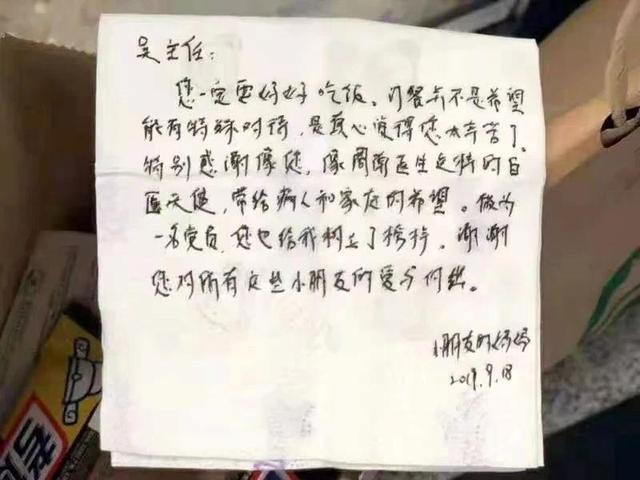 吴主任：
您一定要好好吃饭。订餐真不是希望
能有特殊对待，是真心觉得您太辛苦了。
特别感谢像您，像周南医生这样的白
医天使，带给病人和家庭的希望。做为
一名党员，您也给我树立了榜样。谢谢
您对所有这些小朋友的爱与付出。
小朋友的妈妈
2019.9.18